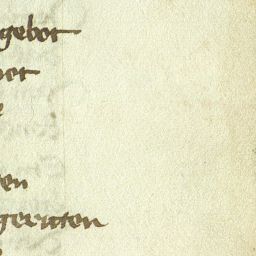 gebot
ot
en
geraten